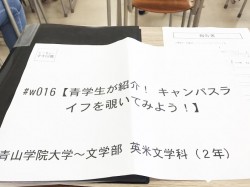 #w016【青学生が紹介！ キャンパスラ
イフを覗いてみよう！】
青山学院大学～文学部 英米文学科（２年）